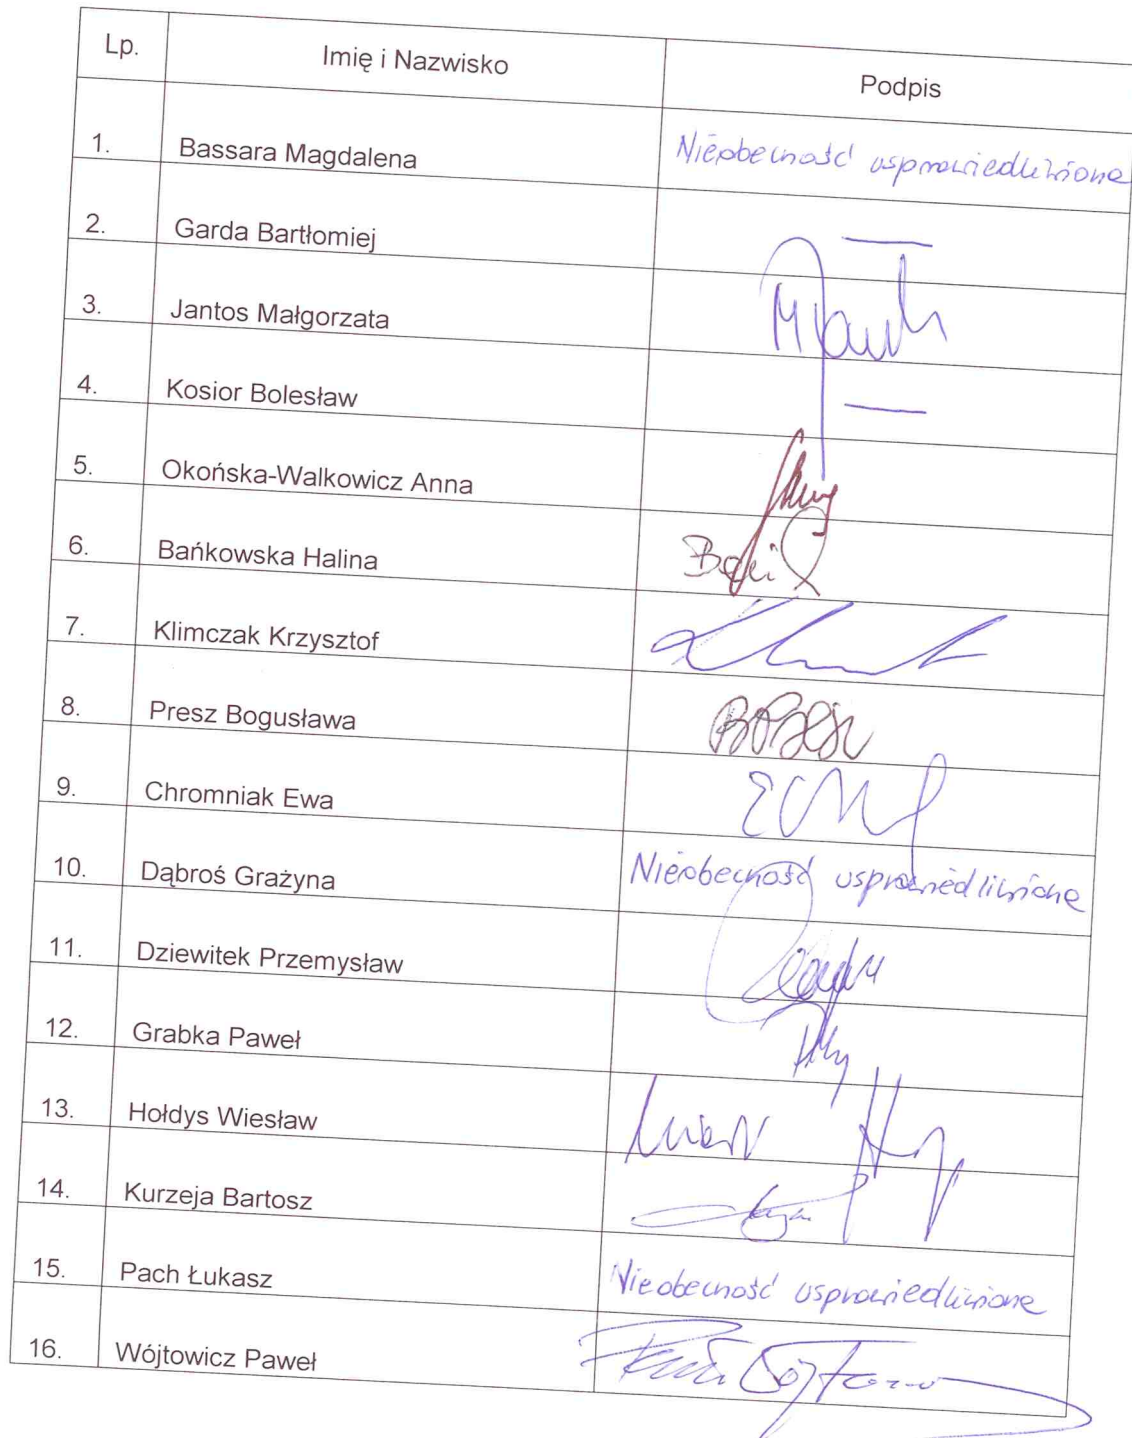 Lp. Imię i Nazwisko Podpis
1. Bassara Magdalena Nieobecność usprawiedliwiona
2. Garda Bartłomiej —
3. Jantos Małgorzata
4. Kosior Bolesław —
5. Okońska-Walkowicz Anna
6. Bańkowska Halina
7. Klimczak Krzysztof
8. Presz Bogusława
9. Chromniak Ewa
10. Dąbroś Grażyna Nieobecność usprawiedliwiona
11. Dziewitek Przemysław
12. Grabka Paweł
13. Hołdys Wiesław
14. Kurzeja Bartosz
15. Pach Łukasz Nieobecność usprawiedliwiona
16. Wójtowicz Paweł